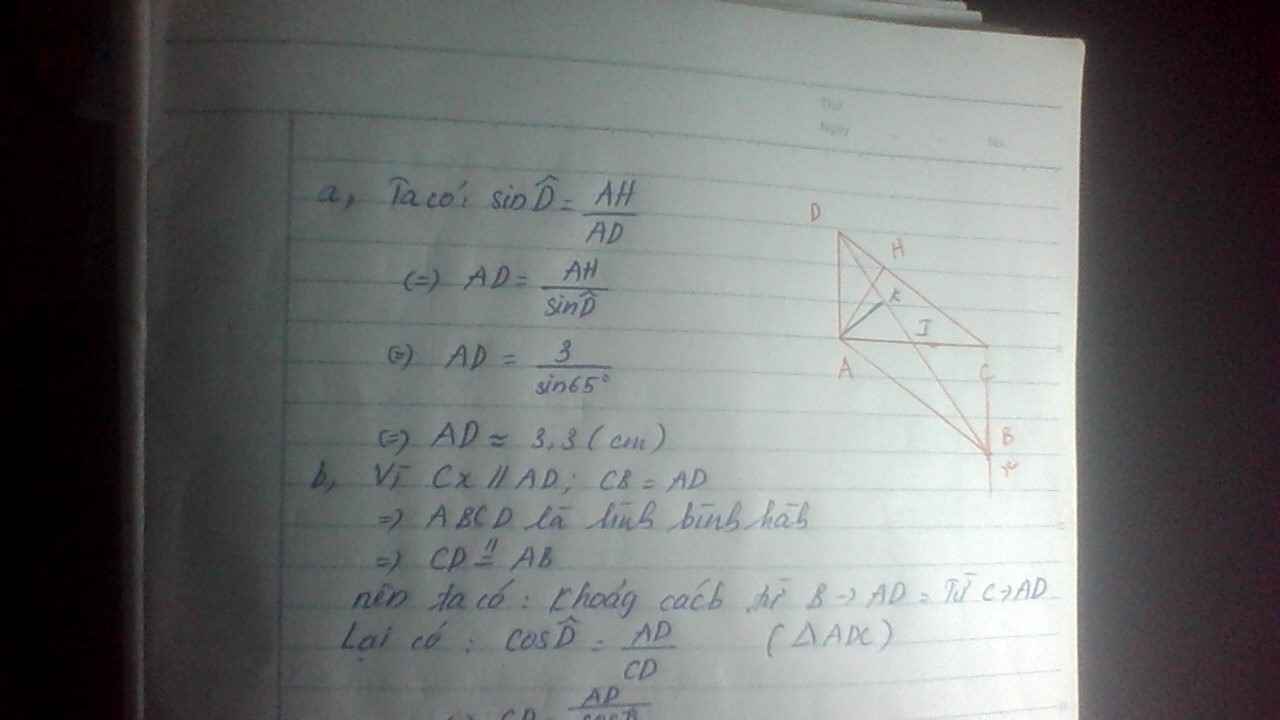 Thứ
Ngày
No.
a, Ta có: sin D̂ = AH/AD
(=) AD = AH/sin D̂
(=) AD = 3/sin65°
(=) AD ≈ 3,3 (cm)
D
H
K
I
A
C
B
x
b, Vì Cx // AD; CB = AD
=) ABCD là hình bình hàh
=) CD // = AB
nên ta có: Khoảg cách từ B -> AD = Từ C -> AD
Lại có: cos D̂ = AD/CD (△ADC)
(=) CD = AD/cos D̂